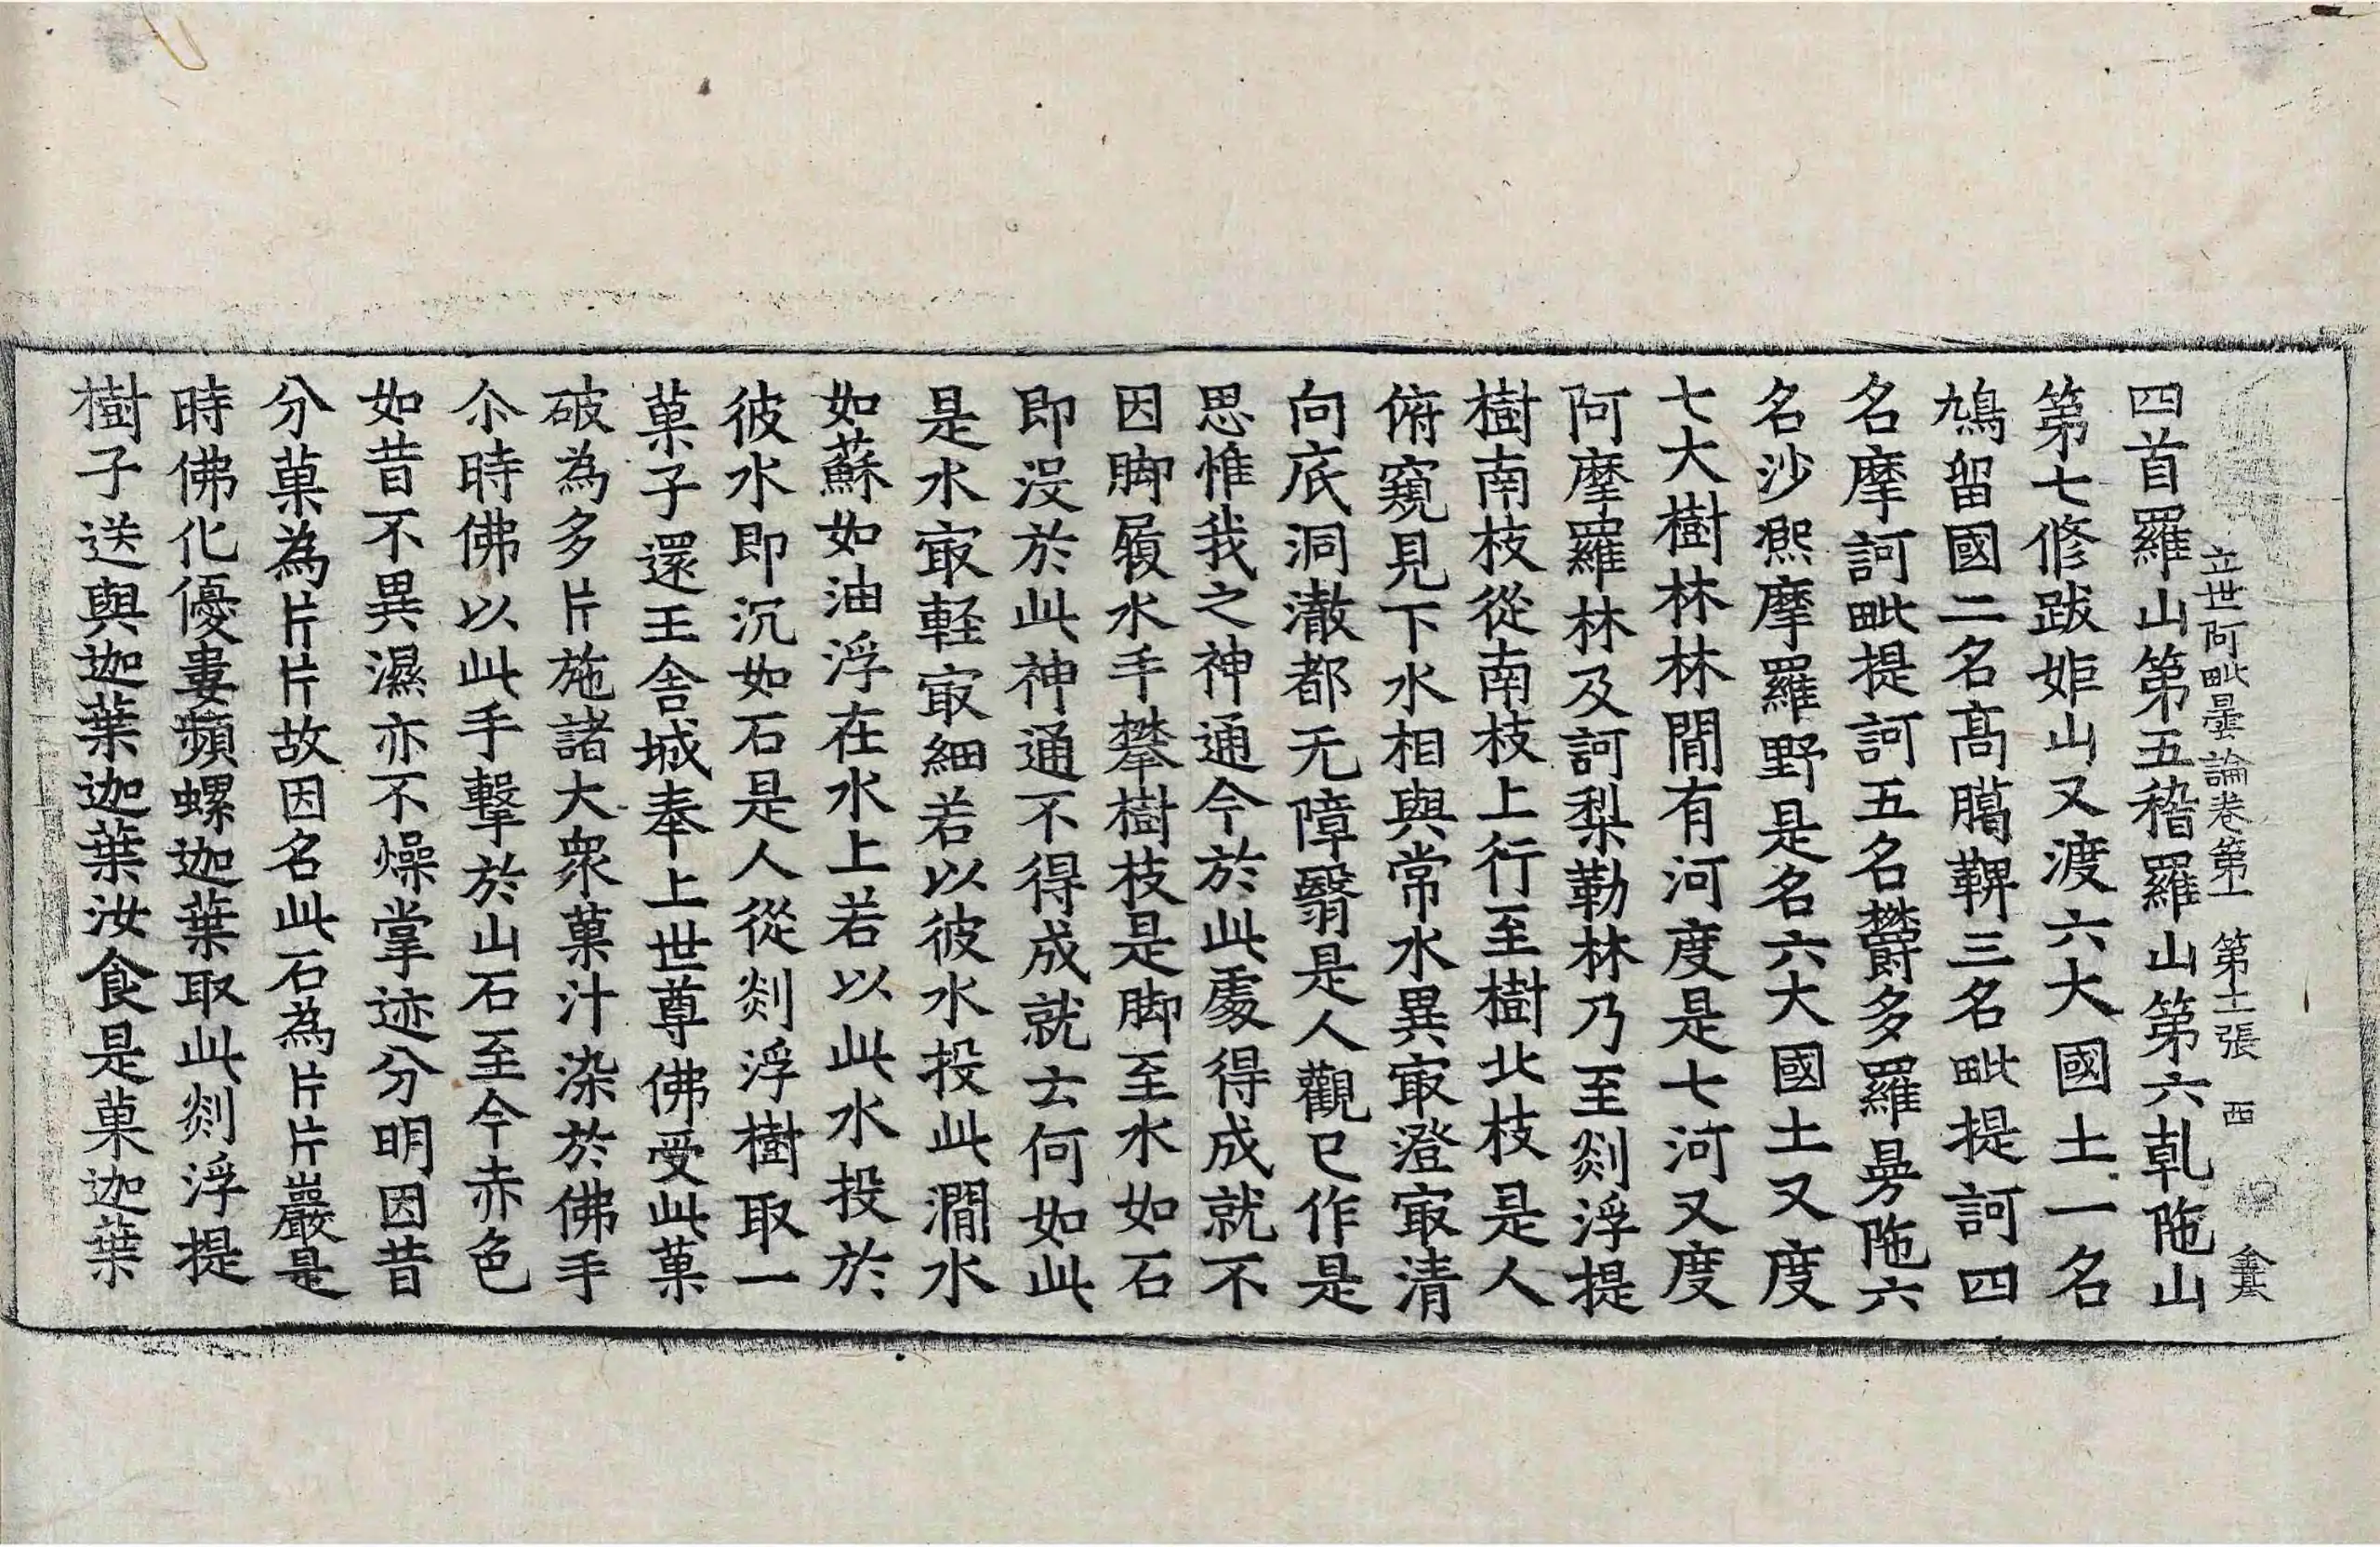 立世阿毗曇論卷第一 第十二張 西
四首羅山第五稽羅山第六乹陁山
第七修跋姖山又渡六大國土一名
鳩留國二名髙臈鞞三名毗提訶四
名摩訶毗提訶五名欝多羅曼陁六
名沙熈摩羅野是名六大國土又度
七大樹林林間有河度是七河又度
阿摩羅林及訶梨勒林乃至剡浮提
樹南枝從南枝上行至樹北枝是人
俯窺見下水相與常水異㝡澄㝡清
向底洞澈都无障翳是人觀已作是
思惟我之神通今於此處得成就不
因脚履水手攀樹枝是脚至水如石
即没於此神通不得成就云何如此
是水㝡軽㝡細若以彼水投此㵎水
如蘇如油浮在水上若以此水投於
彼水即沉如石是人從剡浮樹取一
菓子還王舍城奉上世尊佛受此菓
破為多片施諸大衆菓汁染於佛手
尒時佛以此手擊於山石至今赤色
如昔不異濕亦不燥掌迹分明因昔
分菓為片片故因名此石為片片巖是
時佛化優婁頻螺迦葉取此剡浮提
樹子送與迦葉迦葉汝食是菓迦葉